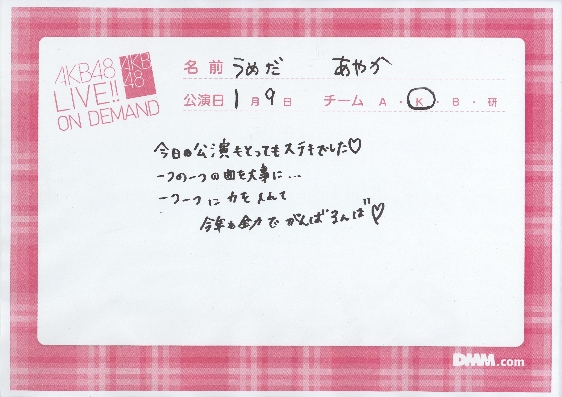 AKB48
LIVE!!
ON DEMAND
AKB
48
名前 うめだ あやか
公演日 1月9日 チーム A・K・B・研
今日の公演もとってもステキでした♡
一つの一つの曲を大事に...
一つ一つに力をこめて
今年も全力でがんばるんば♡
DMM.com